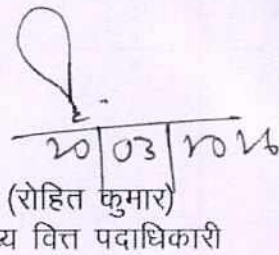 20|03|2026
(रोहित कुमार)
वित्त पदाधिकारी